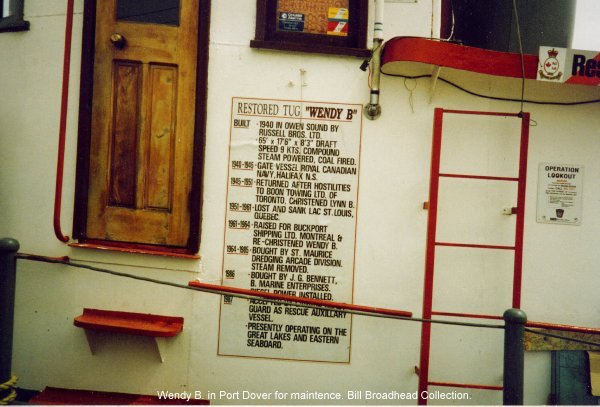 RESTORED TUG "WENDY B"
BUILT - 1940 IN OWEN SOUND BY
RUSSELL BROS. LTD.
- 65' X 17'6" X 8'3" DRAFT
SPEED 9 KTS. COMPOUND
STEAM POWERED, COAL FIRED.
1940-1945 - GATE VESSEL ROYAL CANADIAN
NAVY, HALIFAX N.S.
1945-195 - RETURNED AFTER HOSTILITIES
TO BOON TOWING LTD. OF
TORONTO, CHRISTENED LYNN B.
1951-1961 - LOST AND SANK LAC ST. LOUIS,
QUEBEC.
1961-1964 - RAISED FOR BUCKPORT
SHIPPING LTD. MONTREAL &
RE-CHRISTENED WENDY B.
1964-1985 - BOUGHT BY ST. MAURICE
DREDGING ARCADE DIVISION.
STEAM REMOVED.
1986 - BOUGHT BY J. G. BENNETT,
B. MARINE ENTERPRISES.
DIESEL POWER INSTALLED.
1987
GUARD AS RESCUE AUXILLARY
VESSEL.
- PRESENTLY OPERATING ON THE
GREAT LAKES AND EASTERN
SEABOARD.
Res
OPERATION
LOOKOUT
Wendy B. in Port Dover for maintence. Bill Broadhead Collection.